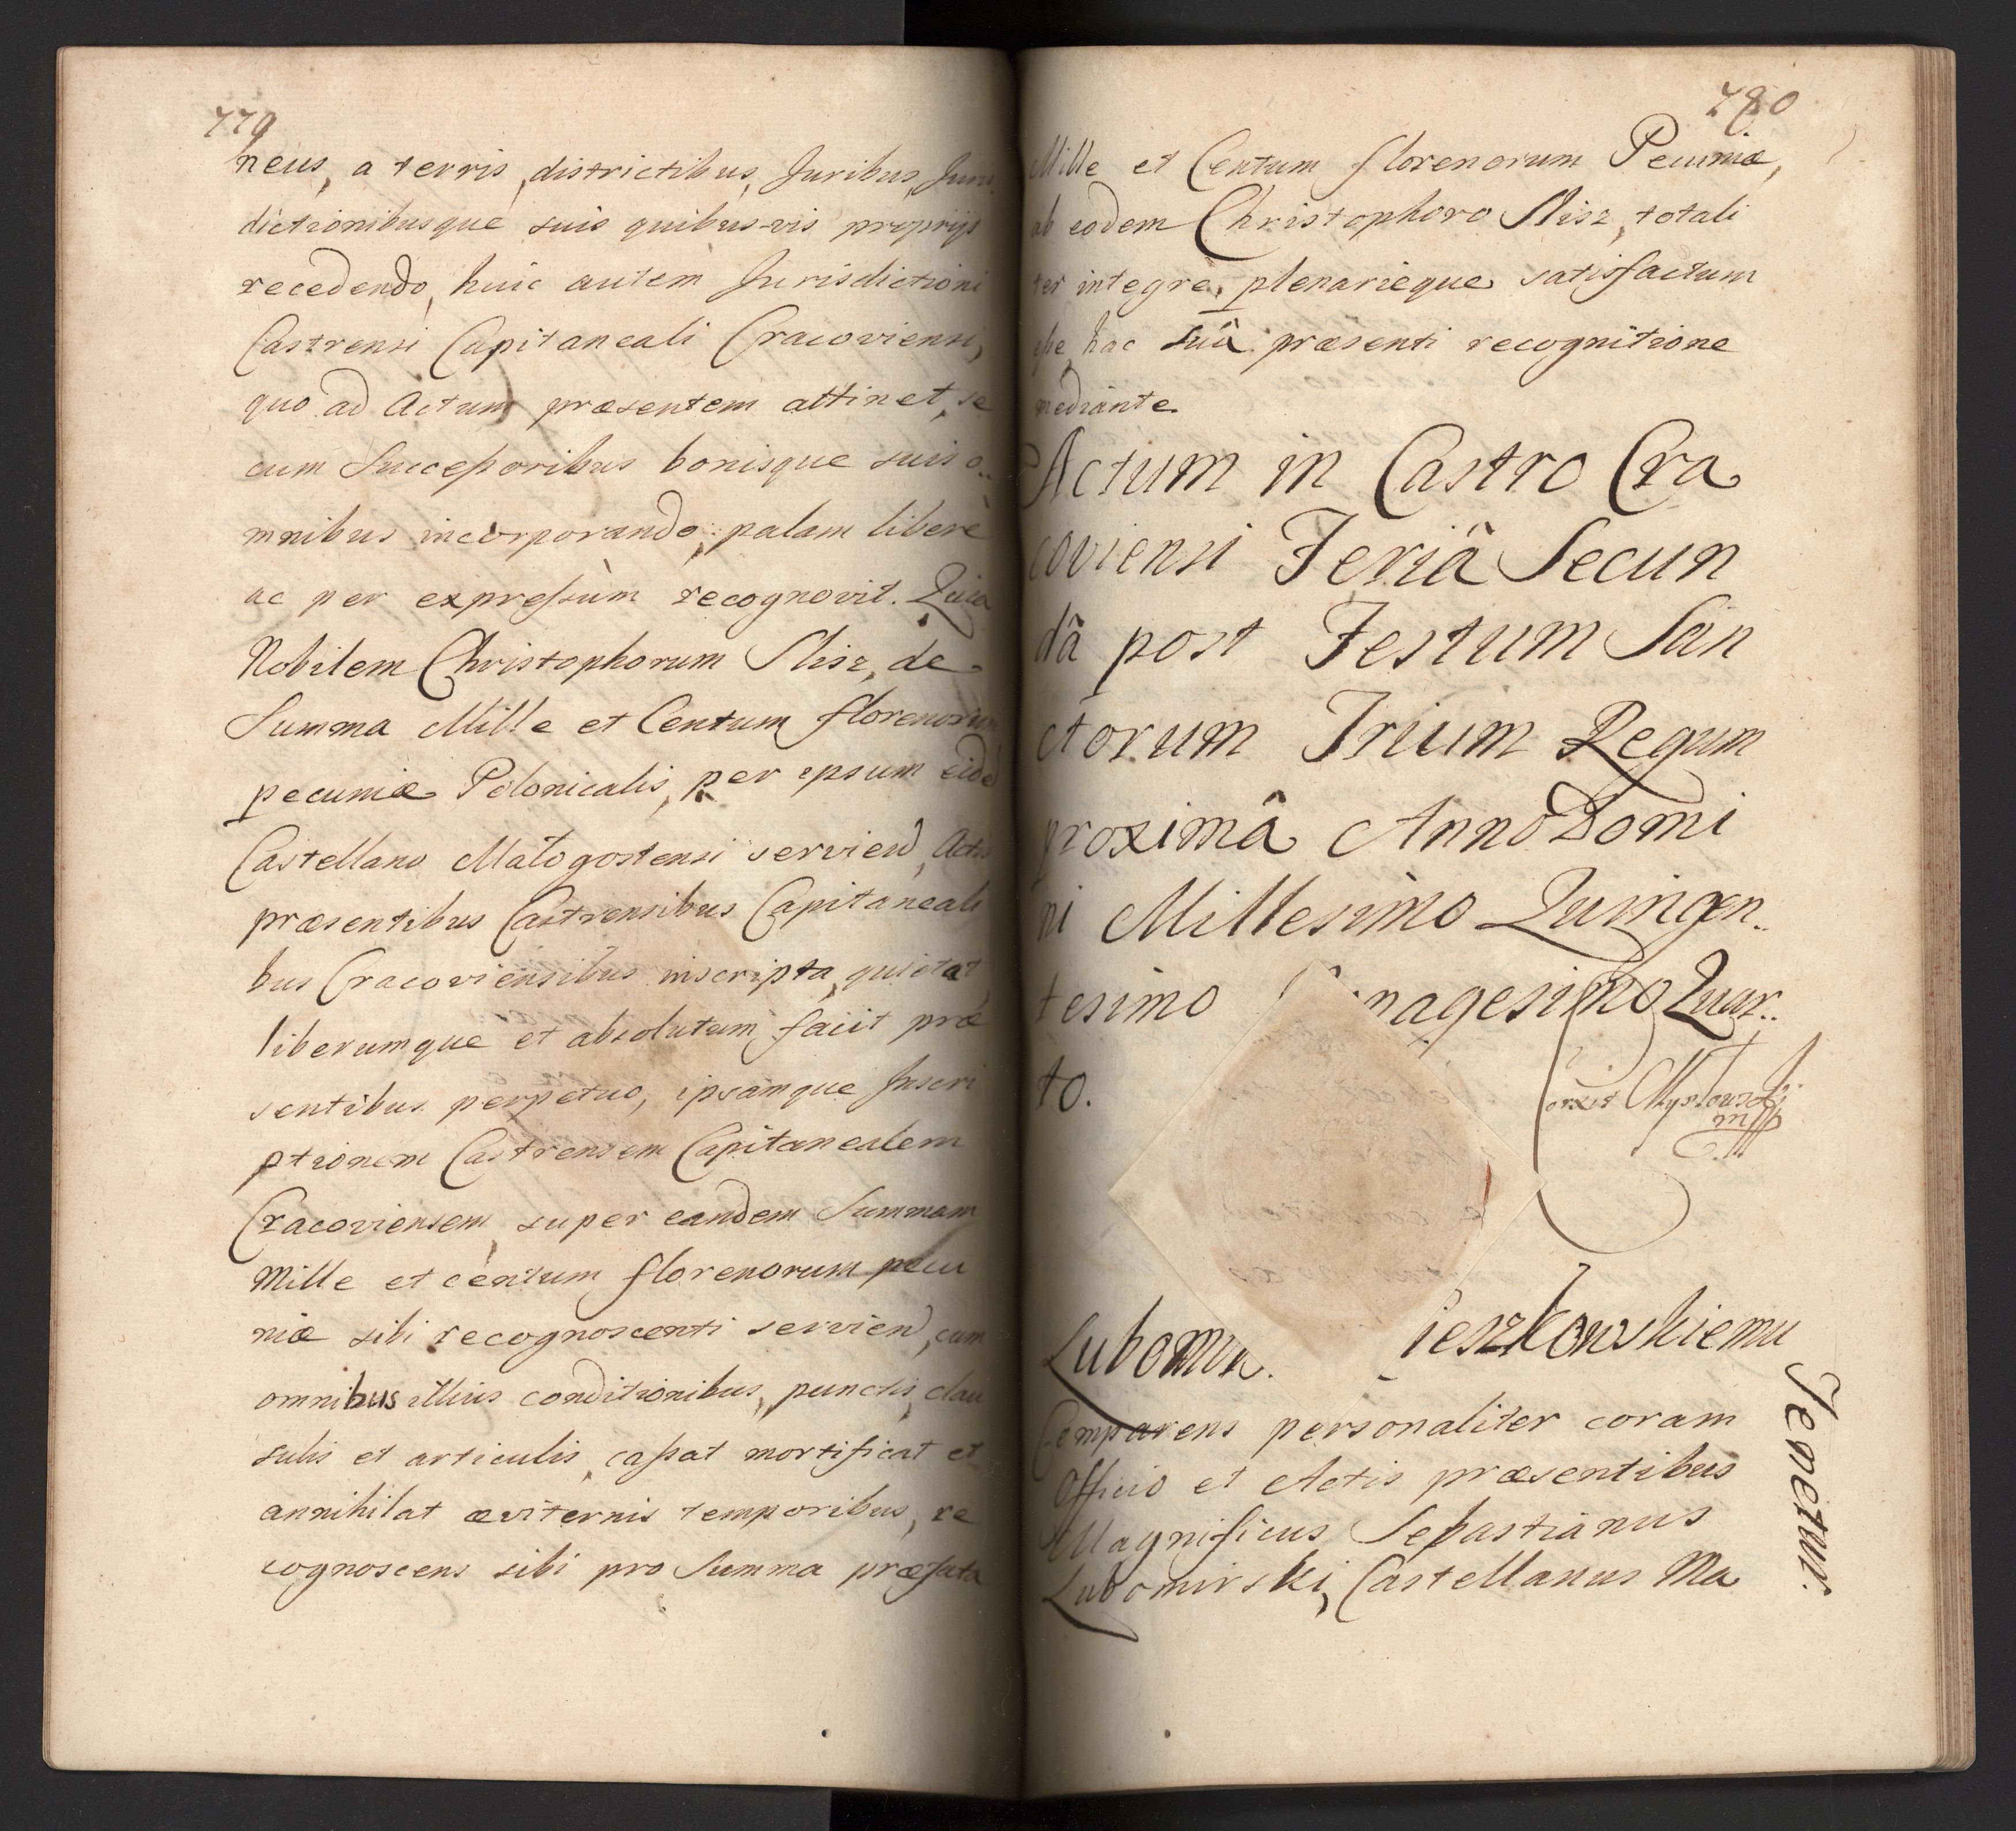 779
neus, a terris, districtibus, Juribus, Juris
dictionibusque suis quibus-vis proprijs
recedendo, huic autem Jurisdictioni
Castrensi Capitaneali Cracoviensi,
quo ad Actum præsentem attinet, se
cum Succeßoribus bonisque suis o..
mnibus incorporando: palam liberè
ac per expreſsùm recognovit. Quia
Nobilem Christophorum Slisz, de
Summa Mille et Centum florenorum
pecuniæ Polonicalis, per ipsum eidē
Castellano Małogostensi serviend, Actis
præsentibus Castrensibus Capitaneali
bus Cracoviensibus inscripta, quietat
liberumque et absolutum, faiit præ
sentibus perpetuo, ipsamque Inscri
ptionem Castrensem Capitanealem
Cracoviensem super eandem Summam
Mille et centum florenorum pecu
niæ sibi recognoscenti serviend, cum
omnibus illius conditionibus, punctis, clau
sulis et articulis, caßat mortificat et
annihilat æviternis temporibus, re
cognoscens sibi pro Summa præfata
780
Mille et Centum florenorum Pecuniæ,
ab eodem Christophoro Slisz, totali
ter integre, plenarieque satisfactum
eße hac suâ præsenti recognitione
mediante.
Actum in Castro Cra
coviensi Feriâ Secun
dâ post Festum San
ctorum Trium Regum
proximâ Anno Domi
ni Millesimo Quingen..
tesimo nagesimo Quar..
to.
Mysłowski
mp
Lubomir. ieszkowskiemu
Comparens personaliter coram
Officio et Actis præsentibus
Magnificus Sebastianus
Lubomirski, Castellanus Ma
Tenetur.